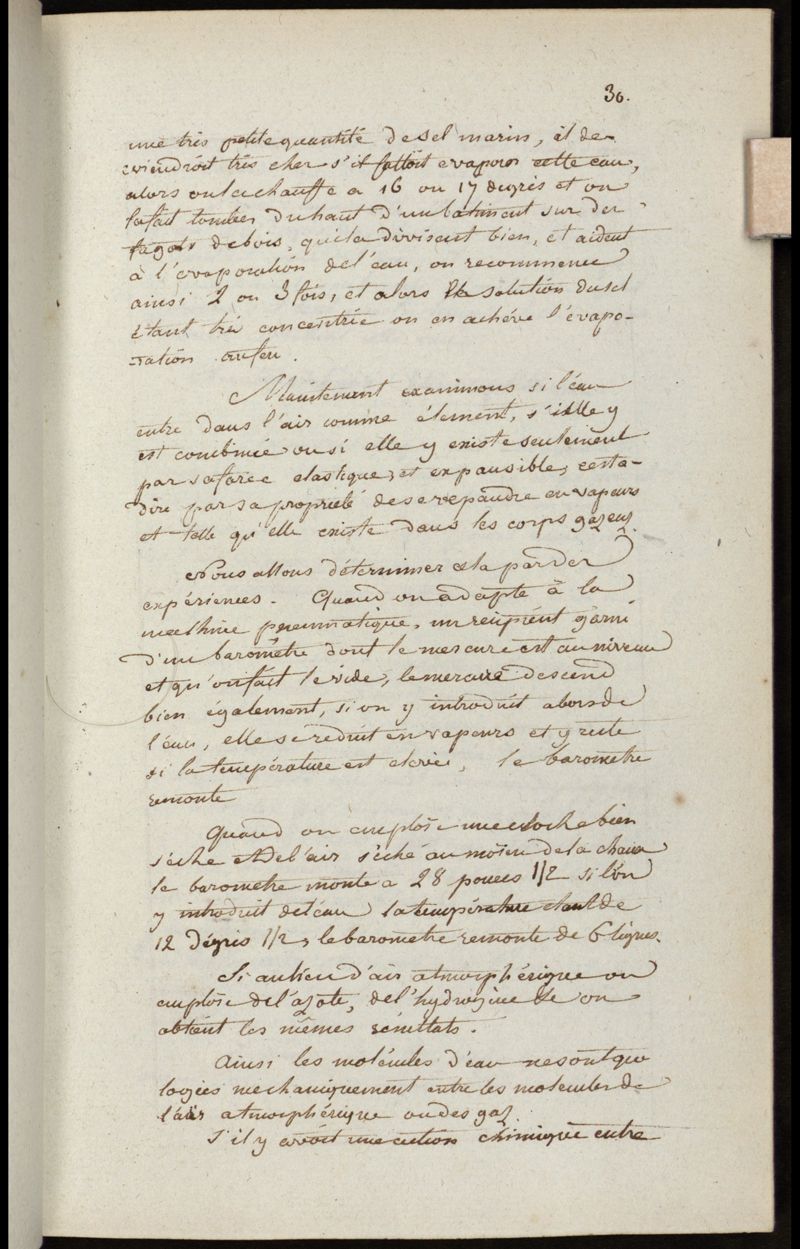 30.
une très petite quantité de sel marin, il de-
viendroit très cher s'il falloit evaporer cette eau,
alors on la chauffe a 16 ou 17 degrés et on
la fait tomber du haut d'un batiment sur des
fagots de bois, qui la divisent bien, et aident
à l'evaporation de l'eau, on recommence
ainsi 2 ou 3 fois, et alors la solution du sel
étant très concentrée on en achève l'évapo-
ration au feu.
Maintenant examinons si l'eau
entre dans l'air comme élement, s'ielle y
est combinée ou si elle y existe seulement
par sa force elastique, et expansible, cesta-
dire par sa propriété de se repandre en vapeurs
et telle qu'elle existe dans les corps gazeuz.
Nous allons déterminer cela par des
expériences. Quand on adapte à la
machine pneumatique, un recipient garni
d'un baromètre dont le mercure est au niveau
et qu'on fait le vide, le mercure descend
bien également, si on y introduit alors de
l'eau, elle se reduit en vapeurs et y reste
si la température est elevée, le barometre
remonte
Quand on emploie une cloche bien
sèche et de l'air séché au moïen de la chaux
le barometre monte a 28 pouces 1/2 si l'on
y introduit de l'eau la température etant de
12 dégrés 1/2, le barometre remonte de 6 lignes.
Si au lieu d'air atmosphérique on
emploie de l'azote, de l'hydrogène &c on
obtient les mêmes résultats.
Ainsi les molécules d'eau ne sont que
logées mechaniquement entre les molecules de
l'air atmosphérique ou des gaz.
S'il y avoit une action chimique entre